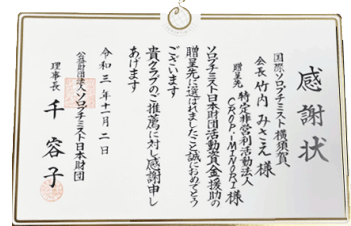 感謝状
国際ソロプチミスト横須賀
会長 竹内 みさえ 様
贈呈先 特定非営利活動法人
CROP.-MINORI 様
ソロプチミスト日本財団活動資金援助の
贈呈先に選ばれましたこと誠におめでとう
ございます
貴クラブのご推薦に対し感謝申し
あげます
令和三年十一月二日
公益財団法人ソロプチミスト日本財団
理事長 千 容子